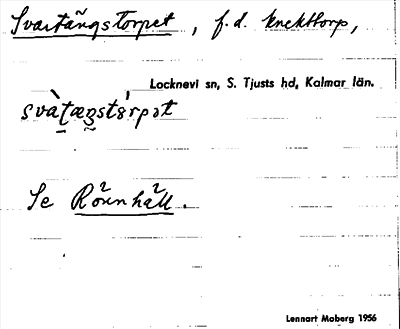 Svartängstorpet, f.d. knekttorp,
Locknevi sn, S. Tjusts hd, Kalmar län.
svàt̲æŋstɷ́rpət
Se Rönnhäll.
Lennart Moberg 1956